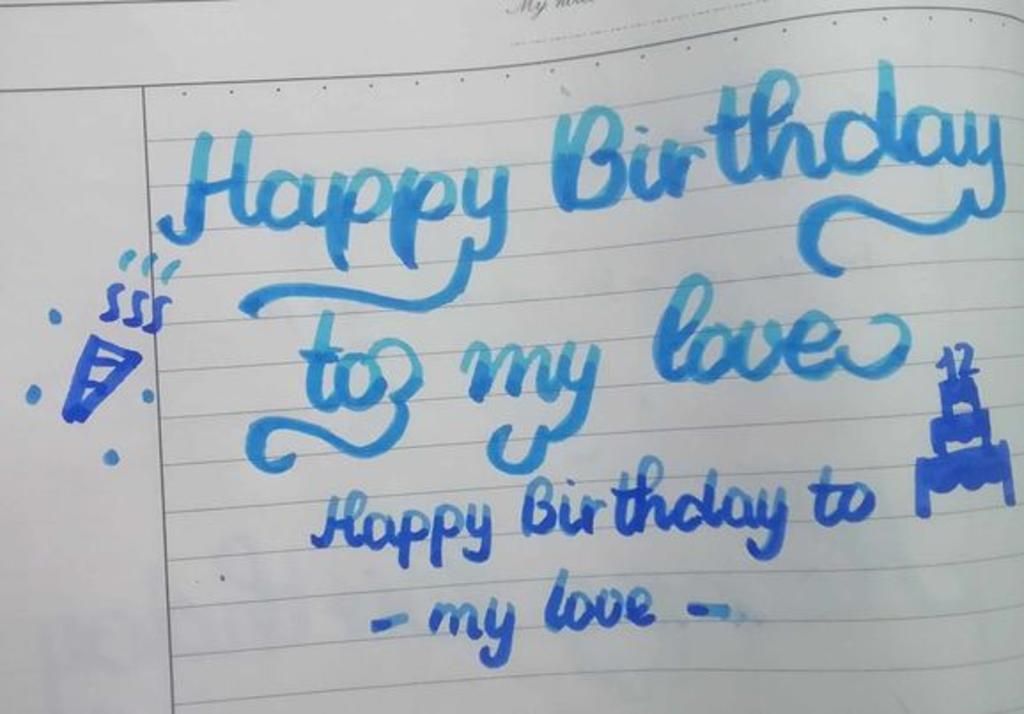 My
Happy Birthday
to my love
12
Happy Birthday to
- my love -